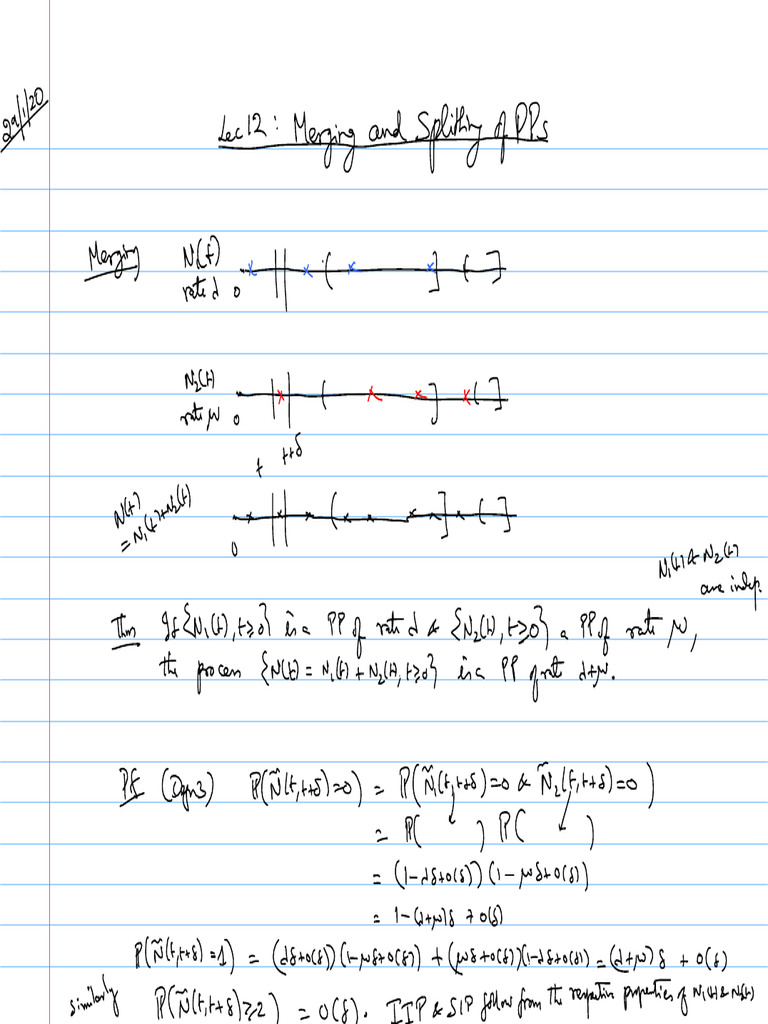 29/1/20
Lec 12: Merging and Splitting of PPs
Merging N₁(t)
rate λ 0
N₂(t)
rate μ 0
t t+δ
N(t)
= N₁(t)+N₂(t)
0
N₁(t) & N₂(t)
are indep.
Thm If {N₁(t), t≥0} is a PP of rate λ & {N₂(t), t≥0} a PP of rate μ,
the process {N(t) = N₁(t) + N₂(t), t≥0} is a PP of rate λ+μ.
Pf (Defn 3) P(Ñ(t,t+δ)=0) = P(Ñ₁(t,t+δ)=0 & Ñ₂(t,t+δ)=0)
= P( ) P( )
= (1-λδ+o(δ)) (1-μδ+o(δ))
= 1-(λ+μ)δ + o(δ)
P(Ñ(t,t+δ)=1) = (λδ+o(δ))(1-μδ+o(δ)) + (μδ+o(δ))(1-λδ+o(δ)) = (λ+μ)δ + o(δ)
similarly P(Ñ(t,t+δ)≥2) = o(δ). IIP & SIP follow from the respective properties of N₁(t) & N₂(t)